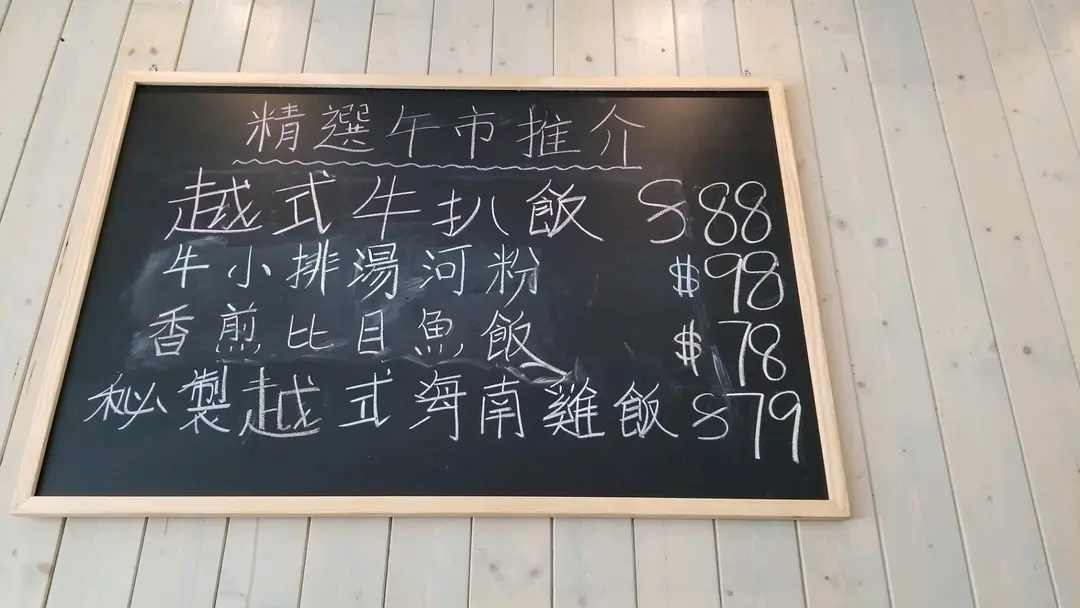 精選午市推介
越式牛扒飯 $88
牛小排湯河粉 $98
香煎比目魚飯 $78
秘製越式海南雞飯 $79